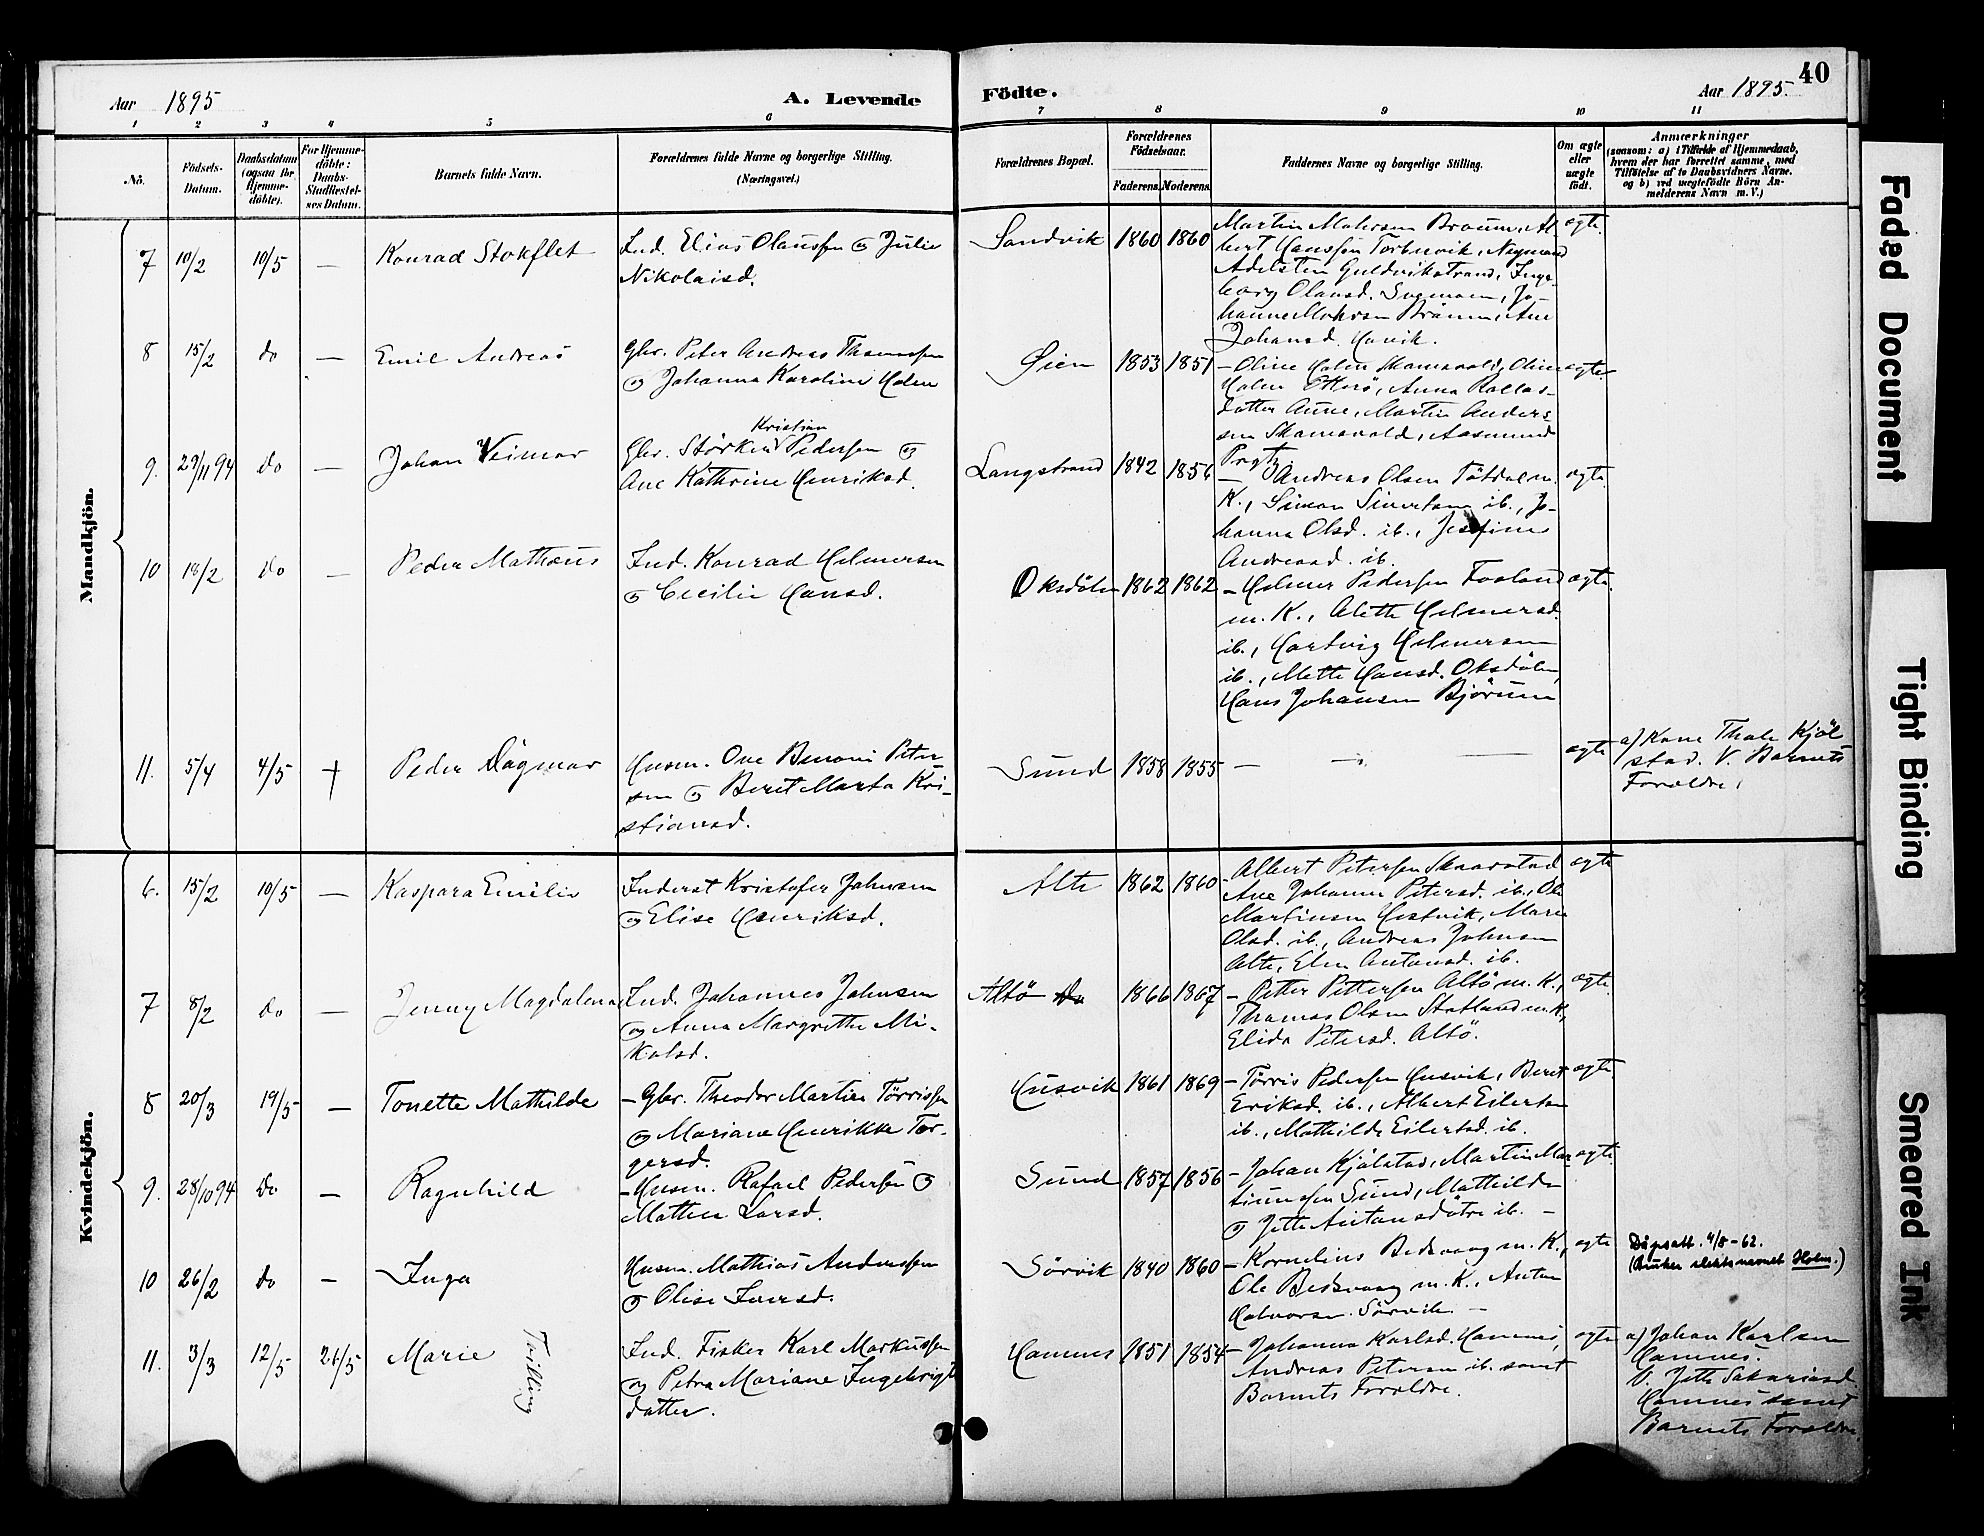 40
Aar 1895
A. Levende
Födte.
Aar 1895.
1 2 3 4 5 6 7 8 9 10 11
No.
Födsels-
Datum.
Daabsdatum
(ogsaa for
Hjemme-
döbte).
For Hjemme-
döbte:
Daabs-
Stadfæstel-
ses Datum.
Barnets fulde Navn.
Forældrenes fulde Navne og borgerlige Stilling.
(Næringsvei.)
Forældrenes Bopæl.
Forældrenes
Födselsaar.
Faderens. Moderens.
Faddernes Navne og borgerlige Stilling.
Om ægte
eller
uægte
födt.
Anmærkninger
(saasom: a) i Tilfælde af Hjemmedaab,
hvem der har forrettet samme, med
Tilföielse af to Daabsvidners Navne.
og b) ved uægtefödte Börn An-
melderens Navn m. V.)
Mandkjön.
7 10/2 10/5 —
Konrad Stokflet
Ind. Elias Olaussen og Julie
Nikolaisd.
Sandvik 1860 1860
Martin Mohrsen Braum, Al
bert Hanssen Torbuvik,
Adelsten Guldvikstrand, Inge-
borg Olausd. Svemoen, Jo-
hanne Mohrsen Braum, Ane
Johansd. Hovik.
ægte.
8 15/2 do —
Emil Andreas
Gbr. Peter Andreas Thomessen
og Johanna Karoline Holm
Øien 1853 1851
— Oline Holm Skamsvold, Oline
Holm Otterö, Anna
datter Aune, Martin Anders-
sen Skamsvold, Aasmund
ægte
9. 29/11 94 do —
Johan Veimar
Kristian
Gbr. Störker Pedersen og
Ane Kathrine Henriksd.
Langstrand 1842 1856
— Andreas Olsen Tötdal m.
K., Simon Sivertsen ib., Jo-
hanna Olsd. ib., Josefine
Andreasd. ib.
ægte.
10 18/2 do —
Peder Mathæus
Ind. Konrad Helmersen
og Cecilie Hansd.
Oksdölen 1862 1862
— Helmer Pedersen Fosland
m. K., Alette Helmersd.
ib., Hartvig Helmersen
ib., Mette Hansd. Oksdölen,
Hans Johansen Bjørum
ægte.
11. 5/4 4/5 †
Peder Dagmar
Husm. Ove Benoni Peter
sen og Beret Marta Kri-
stiansd.
Sund 1858 1855 — — —
ægte
a) Kone Thale Kjöl
stad. V. Barnets
Foreldre.
Kvindekjön.
6. 15/2 10/5 —
Kaspara Emilie
Inderst Kristofer Johnsen
og Elise Henriksd.
Alte 1862 1860
— Albert Petersen Skaarstad
Ane Johanna Petersd. ib., Ole
Martinsen Hestvik, Marie
Olsd. ib., Andreas Johnsen
Alte, Elen Antonsd. ib.
ægte
7 8/2 do —
Jenny Magdalena
Ind. Johannes Johnsen
og Anna Margrethe Mi-
kalsd.
Altö do 1866 1867
— Petter Pettersen Altö m. K.,
Thomas Olsen Statland m. K,
Elida Petersd. Altö.
ægte.
8 20/3 19/5 —
Tonette Mathilde
— Gbr. Theodor Martin Törrissen
og Mariane Henrikke Tor-
gersd.
Husvik 1861 1869
— Törris Pedersen Husvik, Beret
Eriksd. ib., Albert Eilertsen
ib., Mathilde Eilertsd. ib.
ægte.
9. 28/10 94 do —
Ragnhild
— Husm. Rafael Pedersen og
Mathea Larsd.
Sund 1857 1856
— Johan Kjölstad, Martin Mar
tinussen Sund, Mathilde
og Jette Antonsdötre ib. —
ægte.
10 26/2 do —
Inga
Husm. Mathias Anderssen
og Olise Iversd.
Sörvik 1840 1860
— Kornelius Bedsvaag m. K.,
Ole Bedsvaag m. K., Anton
Halvorsen Sörvik. —
ægte
Dåpsatt. 4/8-62.
(Bruker slektsnavnet Holm.)
11. 3/3 12/5 26/5
Marie
Tvilling
Ind. Fisker Karl Markussen
og Petra Mariane Ingebrigts
datter.
Hamnes 1851 1854
— Johanna Karlsd. Hamnes,
Andreas Petersen ib. samt
Barnets Foreldre.
ægte
a) Johan Karlsen
Hamnes.
V. Jette Sakariasd.
Hamnes samt
Barnets Foreldre.
Faded Document
Tight Binding
Smeared Ink